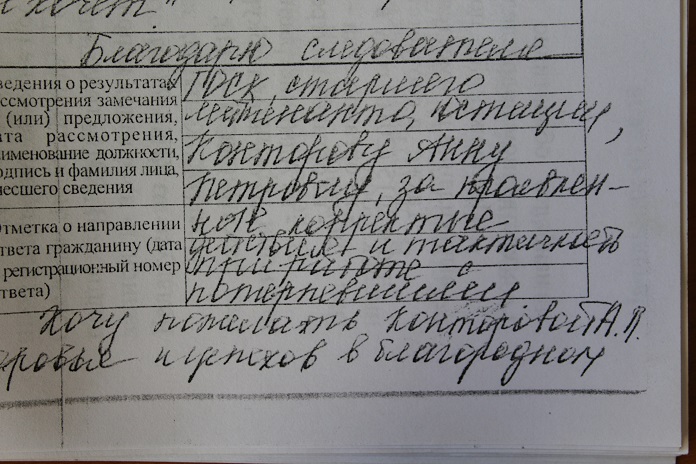 хочет."
Благодарю следователя
ведения о результатах
ГОСК, старшего
ссмотрения замечания
(или) предложения,
лейтенанта, юстиции,
ата рассмотрения,
аименование должности,
Конторову Анну
одпись и фамилия лица,
несшего сведения
Петровну, за проявлен-
ные корректные
Отметка о направлении
ответа гражданину (дата
действия и тактичность
регистрационный номер
при работе с
ответа)
потерпевшими
Хочу пожелать Конторовой А.П.
оровья и успехов в благородном